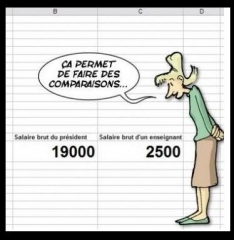 B C D
ÇA PERMET
DE FAIRE DES
COMPARAISONS...
Salaire brut du président Salaire brut d'un enseignant
19000 2500